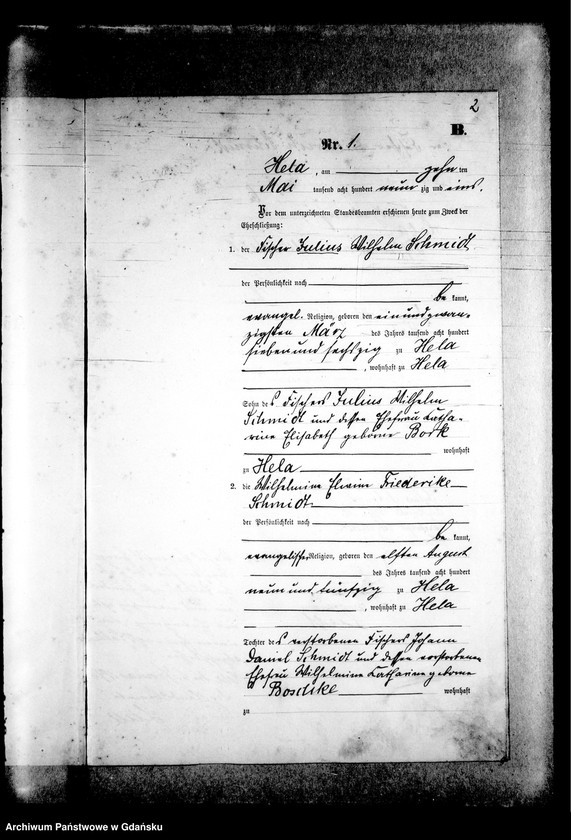 2
B.
Nr. 1.
Hela, am zehn ten
Mai tausend acht hundert neun zig und eins.
Vor dem unterzeichneten Standesbeamten erschienen heute zum Zweck der
Eheschließung:
1. der Fischer Julius Wilhelm Schmidt
der Persönlichkeit nach
be kannt,
evangel. Religion, geboren den einundzwan-
zigsten März des Jahres tausend acht hundert
sieben und sechszig zu Hela
, wohnhaft zu Hela
Sohn des Fischers Julius Wilhelm
Schmidt und dessen Ehefrau Katha-
rine Elisabeth geborne Bork
wohnhaft
zu Hela
2. die Wilhelmine Friederike
Schmidt
der Persönlichkeit nach
be kannt,
Religion, geboren den elften August
des Jahres tausend acht hundert
neun und fünfzig zu Hela
, wohnhaft zu Hela
Tochter des verstorbenen Fischers Johann
Daniel Schmidt und dessen verstorbenen
Ehefrau Wilhelmine Katharine geborne
wohnhaft
zu
Archiwum Państwowe w Gdańsku